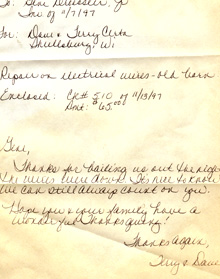 To: Gene
Inv of 11/7/97
For: Dave & Terry
Shullsburg, Wi
Repair on electrical wires - old barn
Enclosed: Ck# 510 of 11/13/97
Amt: $65.00
Gene,
Thanks for bailing us out the nite
the wires were down. It's nice to know
we can still always count on you.
Hope you & your family have a
wonderful Thanksgiving!
Thanks again,
Terry & Dave